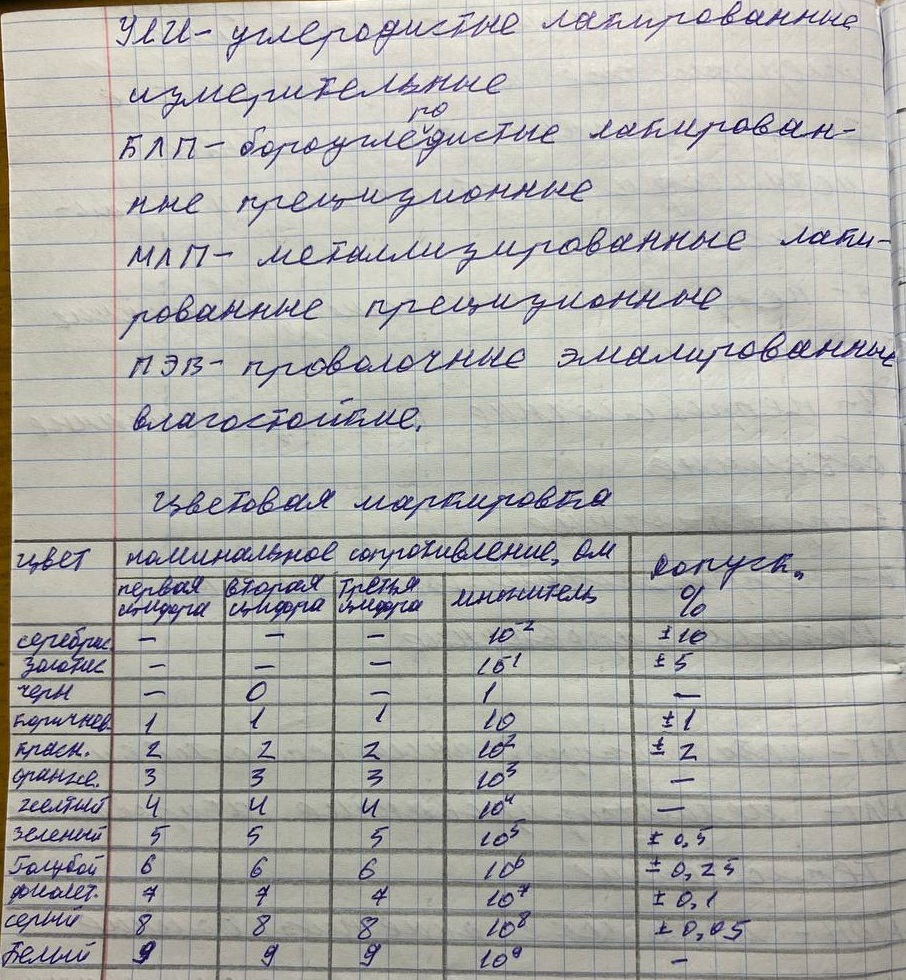 УЛИ- углеродистые лакированные
измерительные
БЛП- бороуглеродистые лакирован-
нне прецизионные
МЛП- металлизированные лаки-
рованные прецизионные
ПЭВ- проволочные эмалированные
влагостойкие.
цветовая маркировка
цвет номинальное сопротивление, ом допуск, %
первая цифра вторая цифра третья цифра множитель
серебрис. — — — 10⁻² ±10
золотис — — — 10⁻¹ ±5
черн — 0 — 1 —
коричнев. 1 1 1 10 ±1
красн. 2 2 2 10² ±2
оранже. 3 3 3 10³ —
желтый 4 4 4 10⁴ —
зеленый 5 5 5 10⁵ ±0,5
Голубой 6 6 6 10⁶ ±0,25
фиолет. 7 7 7 10⁷ ±0,1
серый 8 8 8 10⁸ ±0,05
Белый 9 9 9 10⁹ —